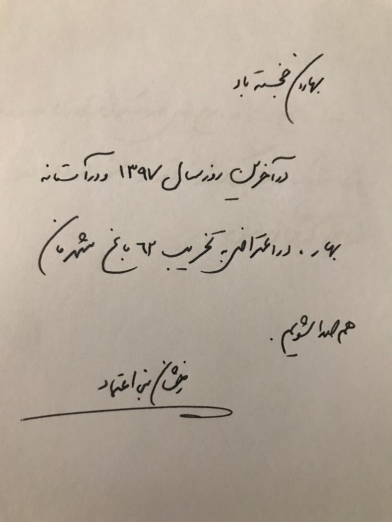 بهارتان خجسته باد
در آخرین روز سال ۱۳۹۷ و در آستانه
بهار، در اعتراض به تخریب ۶۲ باغ شهرمان
هم صدا شویم.
رخشان بنی اعتماد